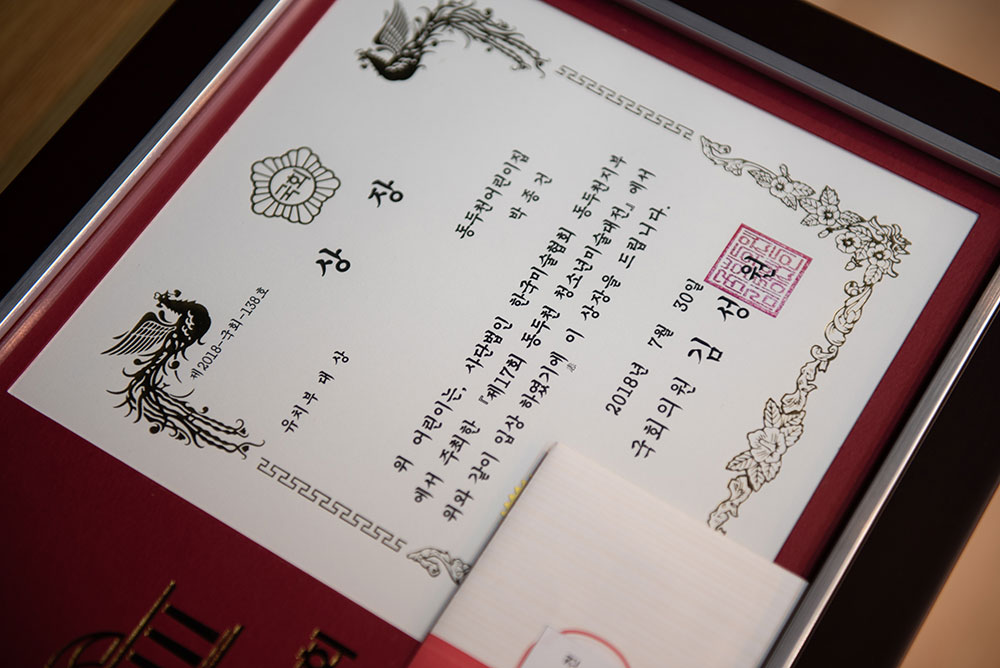 국회
제2018-국회-138호
상 장
유치부대상
동두천어린이집
박종건
위 어린이는, 사단법인 한국미술협회 동두천지부
에서 주최한 『제17회 동두천 청소년미술대전』에서
위와 같이 입상 하였기에 이 상장을 드립니다.
2018년 7월 30일
국회의원 김성원
회
전